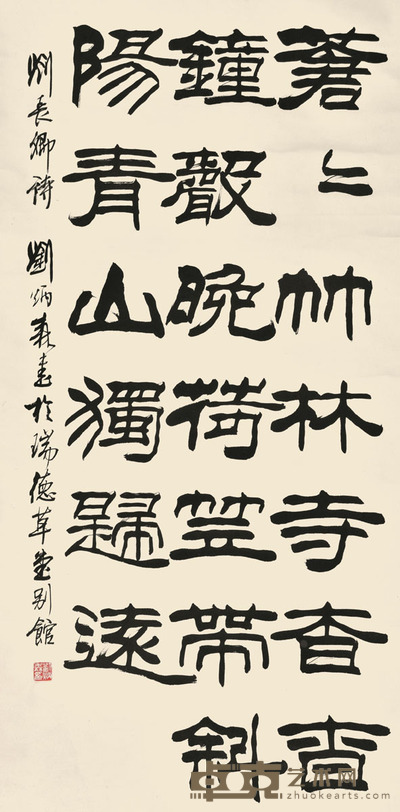 蒼〻竹林寺杳杳
鐘聲晚荷笠帶斜
陽青山獨歸遠
劉長卿詩 劉炳森書於瑞德草堂別館
卓克艺术网
zhuokearts.com